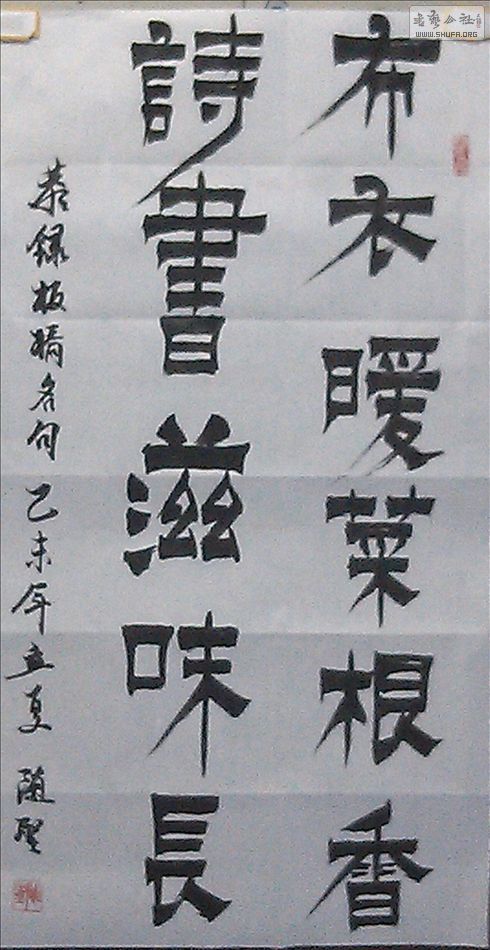 布衣暖菜根香
詩書滋味長
恭録板橋名句 乙未年立夏 随聖
书艺公社
WWW.SHUFA.ORG